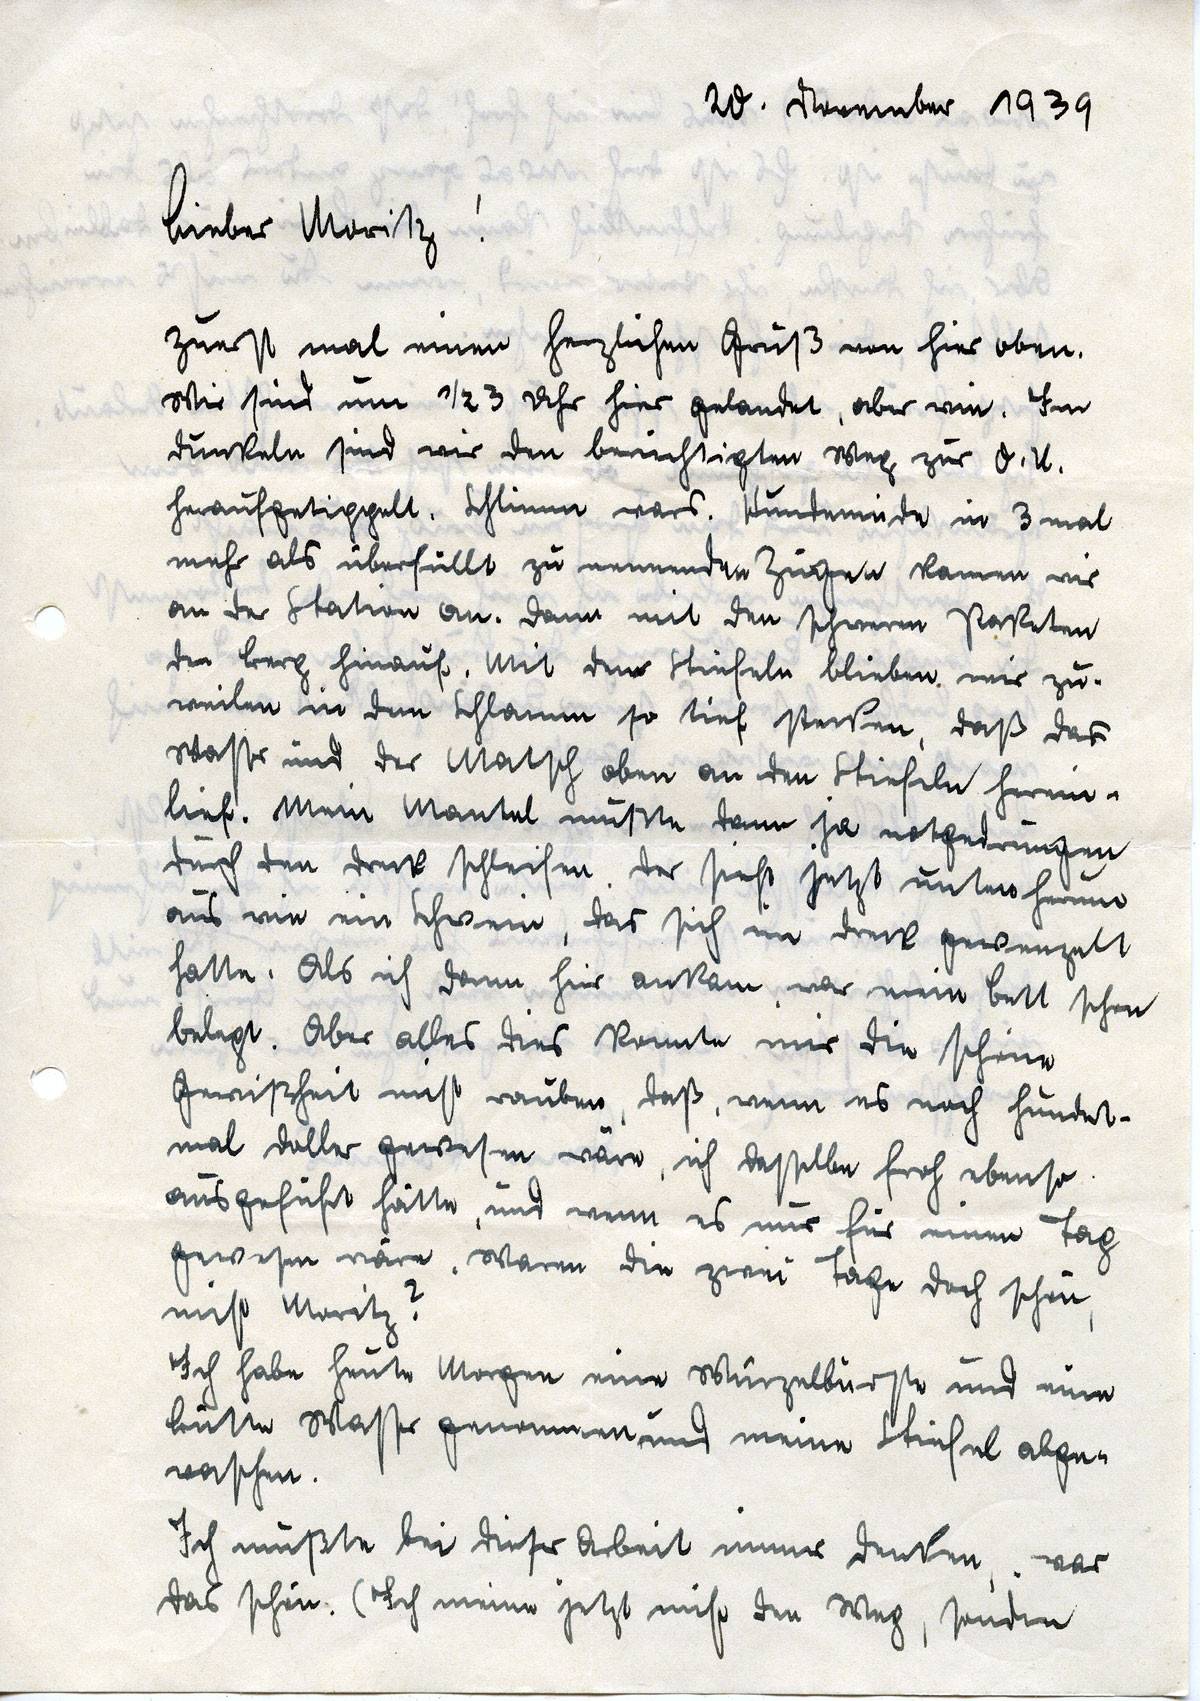 20. November 1939
Lieber Moritz!
Zuerst mal einen herzlichen Gruß von hier oben.
Wir sind um 1/2 3 Uhr hier gelandet, aber wie. Im
Dunkeln sind wir den berüchtigten Weg zur O.U.
heraufgetippelt. Schlimm wars. Hundemüde in 3 mal
mehr als überfüllt zu nennenden Zügen kamen wir
an der Station an. Dann mit den schweren Paketen
den Berg hinauf. Mit den Stiefeln blieben wir zu-
weilen in dem Schlamm so tief stecken, daß das
Wasser und der Matsch oben an den Stiefeln herein-
lief. Mein Mantel mußte dann ja notgedrungen
durch den Dreck schleifen. Der sieht jetzt unten herum
aus wie ein Schwein, das sich im Dreck gewenzelt
hatte. Als ich dann hier ankam, war mein Bett schon
belegt. Aber alles dies konnte mir die schöne
Gewißheit nicht rauben, daß, wenn es noch hundert-
mal doller gewesen wäre, ich dasselbe froh ebenso
ausgeführt hätte, und wenn es nur für einen Tag
gewesen wäre. Waren die zwei Tage doch schön,
nicht Moritz?
Ich habe heute Morgen eine Wurzelbürste und eine
Bütte Wasser genommen und meine Stiefel abge-
waschen.
Ich mußte bei dieser Arbeit immer denken, war
das schön. (Ich meine jetzt nicht den Weg, sondern